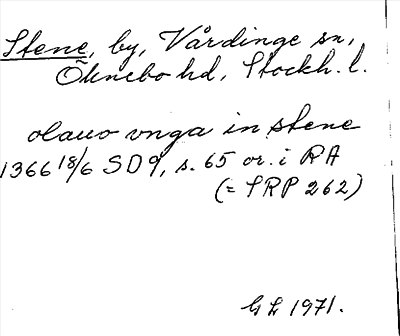 Stene, by, Vårdinge sn,
Öknebo hd, Stockh. l.
olauo vnga in stene
1366 18/6 SD9, s. 65 or. i RA
(= SRP 262)
GL 1971.